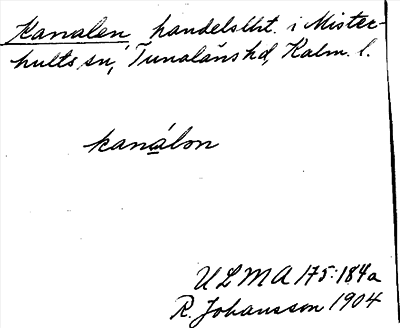 Kanalen, handelslht. i Mister-
hults sn, Tunaläns hd, Kalm. l.
kanálon
ULMA 175:184a
R. Johansson 1904